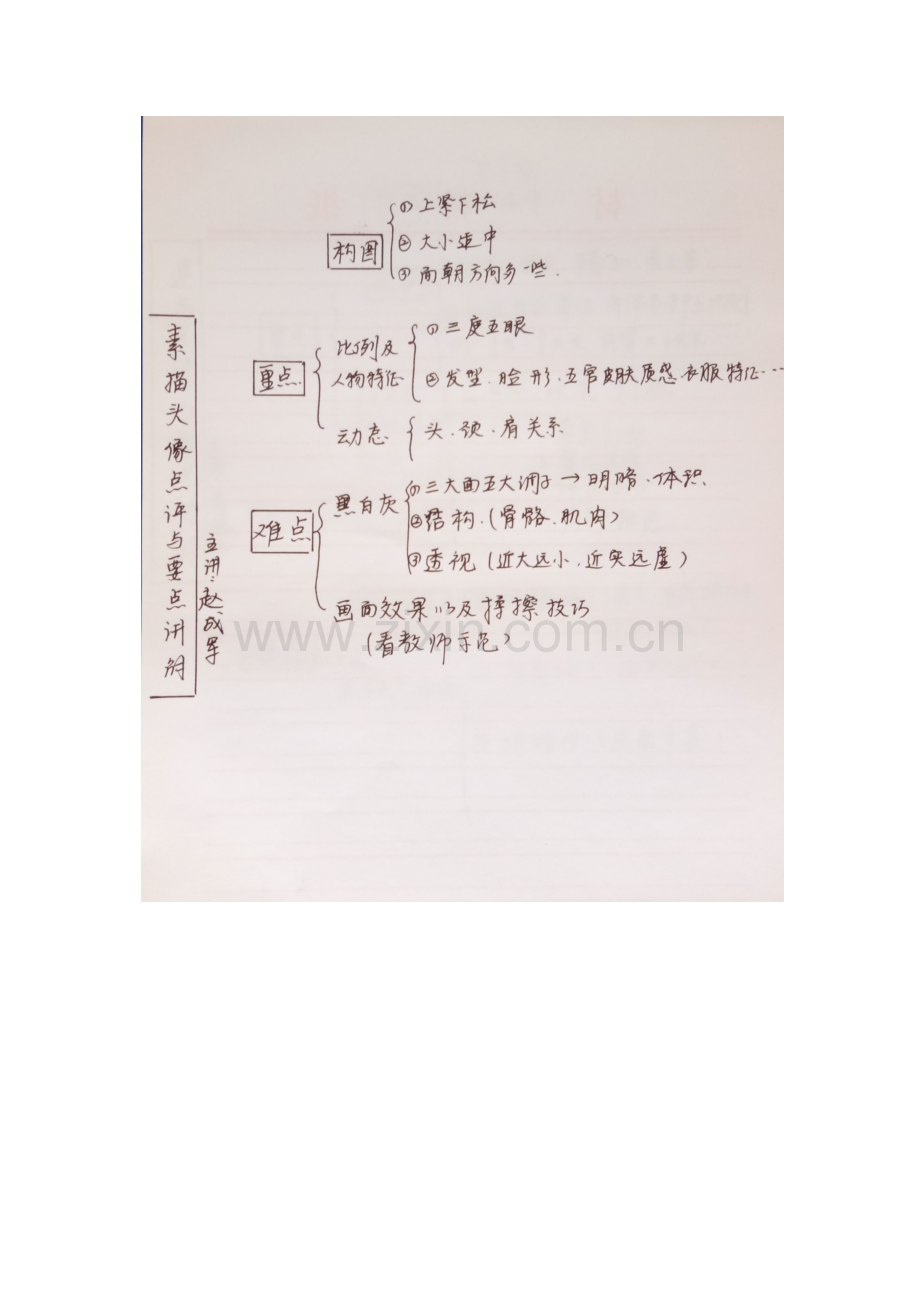 素描头像点评与要点讲
主讲:赵成军
构图
① 上紧下松
② 大小适中
③ 面朝方向多一些.
重点
比例及
人物特征
① 三度五眼
② 发型.脸形.五官皮肤质感.衣服特征…
动态
头.颈.肩关系
难点
黑白灰
① 三大面五大调子→明暗.体积
② 结构.(骨骼.肌肉)
③ 透视(近大远小.近实远虚)
画面效果以及揉擦技巧
(看教师示范)
www.zixin.com.cn